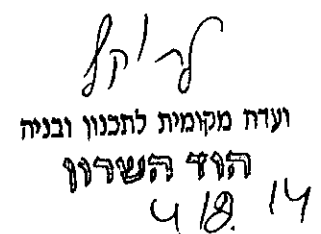 ועדה מקומית לתכנון ובניה
הוד השרון
4/8.14